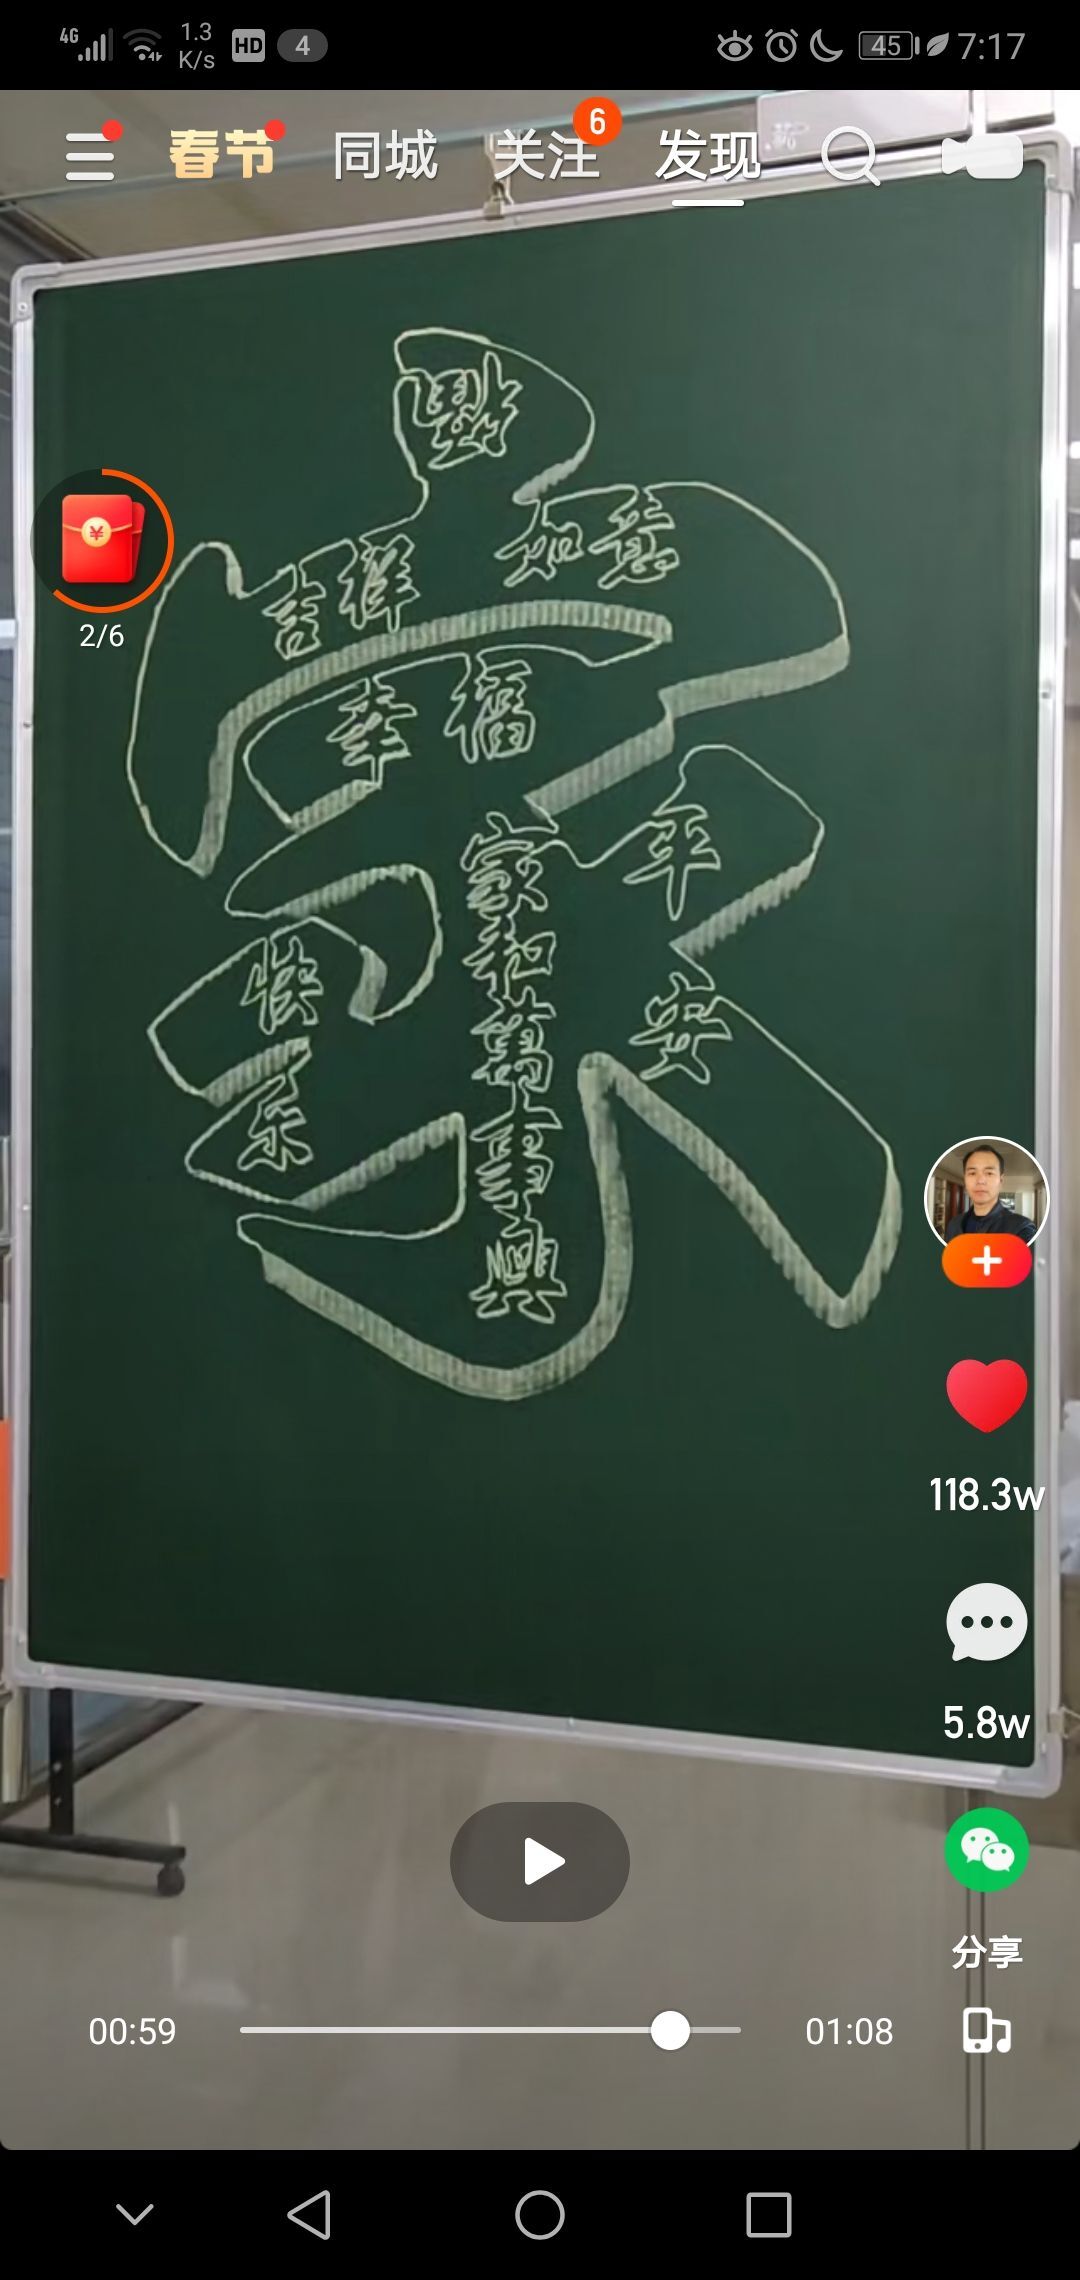 4G 1.3 K/s HD 4 45 7:17
春节 同城 关注 6 发现
吉祥 如意
2/6
幸福
家和萬事興
平安
快乐
118.3w
5.8w
分享
00:59 01:08